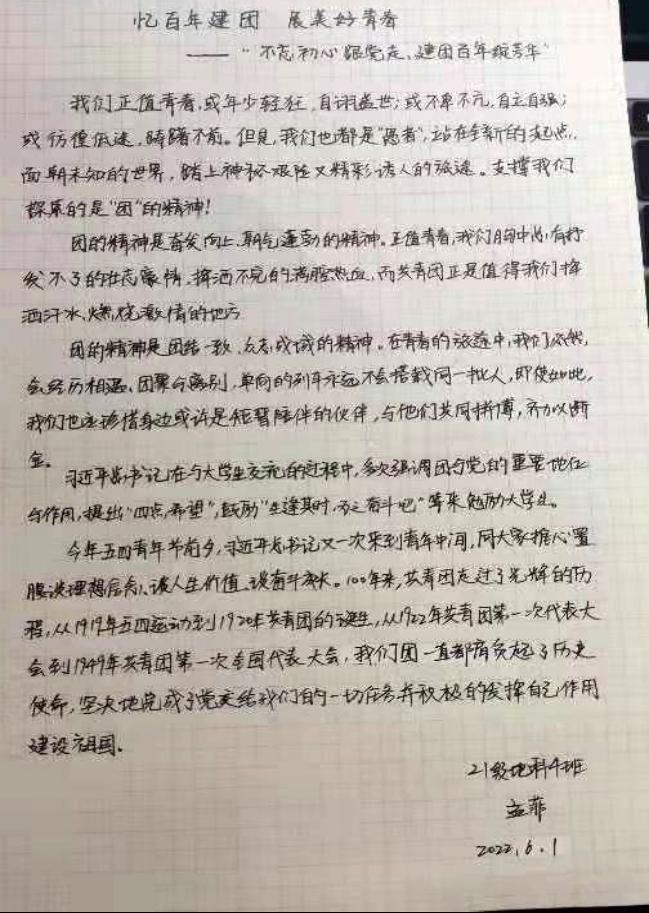 忆百年建团 展美好青春
——“不忘初心跟党走,建团百年绽芳华”
我们正值青春,或年少轻狂,自诩盛世;或不卑不亢,自立自强;
或彷徨低迷,踌躇不前。但是,我们也都是“愚者”,站在全新的起点,
面朝未知的世界,踏上神秘艰险又精彩诱人的旅途。支撑我们
探索的是“团”的精神!
团的精神是奋发向上、朝气蓬勃的精神。正值青春,我们胸中总有抒
发不了的壮志豪情、挥洒不完的满腔热血,而共青团正是值得我们挥
洒汗水、燃烧激情的地方
团的精神是团结一致、众志成城的精神。在青春的旅途中,我们依然
会经历相遇、团聚与离别,单向的列车永远不会搭载同一批人,即使如此,
我们也应珍惜身边或许是短暂陪伴的伙伴,与他们共同拼搏,齐力以断
金。
习近平总书记在与大学生交流的过程中,多次强调团与党的重要地位
与作用,提出“四点希望”,鼓励“生逢其时,奋斗吧”等来勉励大学生。
今年五四青年节前夕,习近平总书记又一次来到青年中间,同大家推心置
腹谈理想信念、谈人生价值、谈奋斗成长。100年来,共青团走过了光辉的历
程,从1919年五四运动到1920年共青团的诞生,从1922年共青团第一次代表大
会到1949年共青团第一次全国代表大会,我们团一直都肩负起了历史
使命,坚决地完成了党交给我们的一切任务并积极的发挥自己作用
建设祖国。
21级地科4班
孟菲
2022.6.1